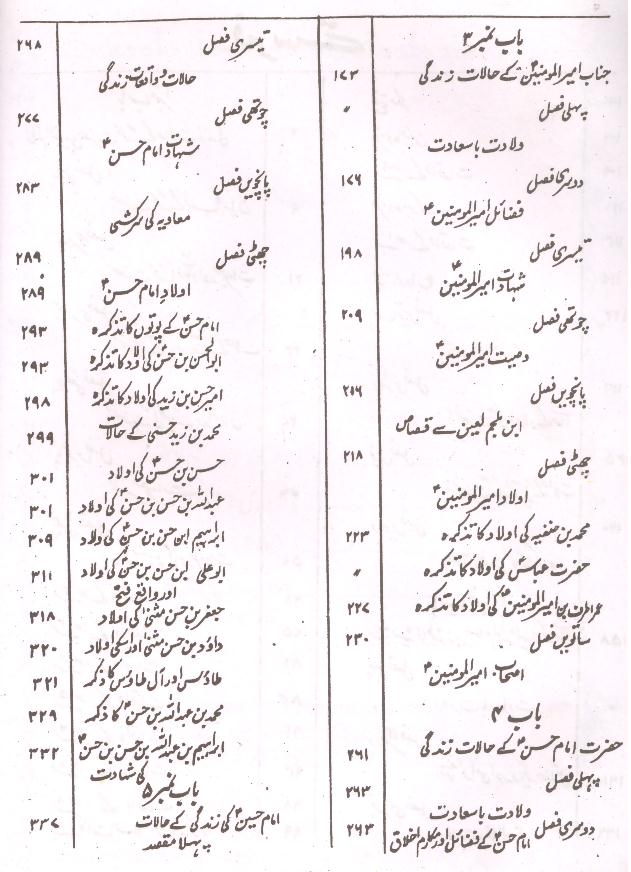 باب نمبر ۳
جناب امیر المومنینؑ کے حالات زندگی ۱۷۳
پہلی فصل 〃
ولادت باسعادت
دوسری فصل ۱۷۶
فضائل امیر المومنینؑ
تیسری فصل ۱۹۸
شہادت امیر المومنینؑ
چوتھی فصل ۲۰۹
وصیت امیر المومنینؑ
پانچویں فصل ۲۵۶
ابن ملجم لعین سے قصاص
چھٹی فصل ۲۱۸
اولاد امیر المومنینؑ
محمد بن حنفیہ کی اولاد کا تذکرہ ۲۲۳
حضرت عباسؑ کی اولاد کا تذکرہ 〃
عمر اطرف بن امیر المومنینؑ کی اولاد کا تذکرہ ۲۲۷
ساتویں فصل ۲۳۰
اصحاب امیر المومنینؑ
باب ۴
حضرت امام حسنؑ کے حالات زندگی ۲۶۱
پہلی فصل ۲۶۳
ولادت باسعادت
دوسری فصل ۲۶۳
امام حسنؑ کے فضائل اور مکارم اخلاق
تیسری فصل ۲۶۸
حالات و واقعات زندگی
چوتھی فصل ۲۷۷
شہادت امام حسنؑ
پانچویں فصل ۲۸۳
معاویہ کی سرکشی
چھٹی فصل ۲۸۹
اولاد امام حسنؑ ۲۸۹
امام حسنؑ کے پوتوں کا تذکرہ ۲۹۳
ابوالحسن بن حسنؑ کی اولاد کا تذکرہ ۲۹۳
امیر حسن بن زید کی اولاد کا تذکرہ ۲۹۸
محمد بن زید حسنی کے حالات ۲۹۹
حسن بن حسنؑ کی اولاد ۳۰۱
عبداللہ بن حسن بن حسنؑ کی اولاد ۳۰۱
ابراہیم ابن حسن بن حسنؑ کی اولاد ۳۰۹
ابو علی ابن حسن بن حسنؑ کی اولاد ۳۱۱
اور واقع فخ
جعفر بن حسن مثنیٰ کی اولاد ۳۱۸
داؤد بن حسن مثنیٰ اور اسکی اولاد ۳۲۰
طاؤس اور آل طاؤس کا ذکر ۳۲۱
محمد بن عبداللہ بن حسنؑ کا ذکر ۳۲۹
ابراہیم بن عبداللہ بن حسن بن حسنؑ ۳۳۲
کی شہادت
باب نمبر ۵
امام حسینؑ کی زندگی کے حالات ۳۳۷
پہلا مقصد